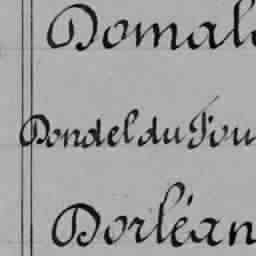 Domal
Dondel du Fou
Dorléan